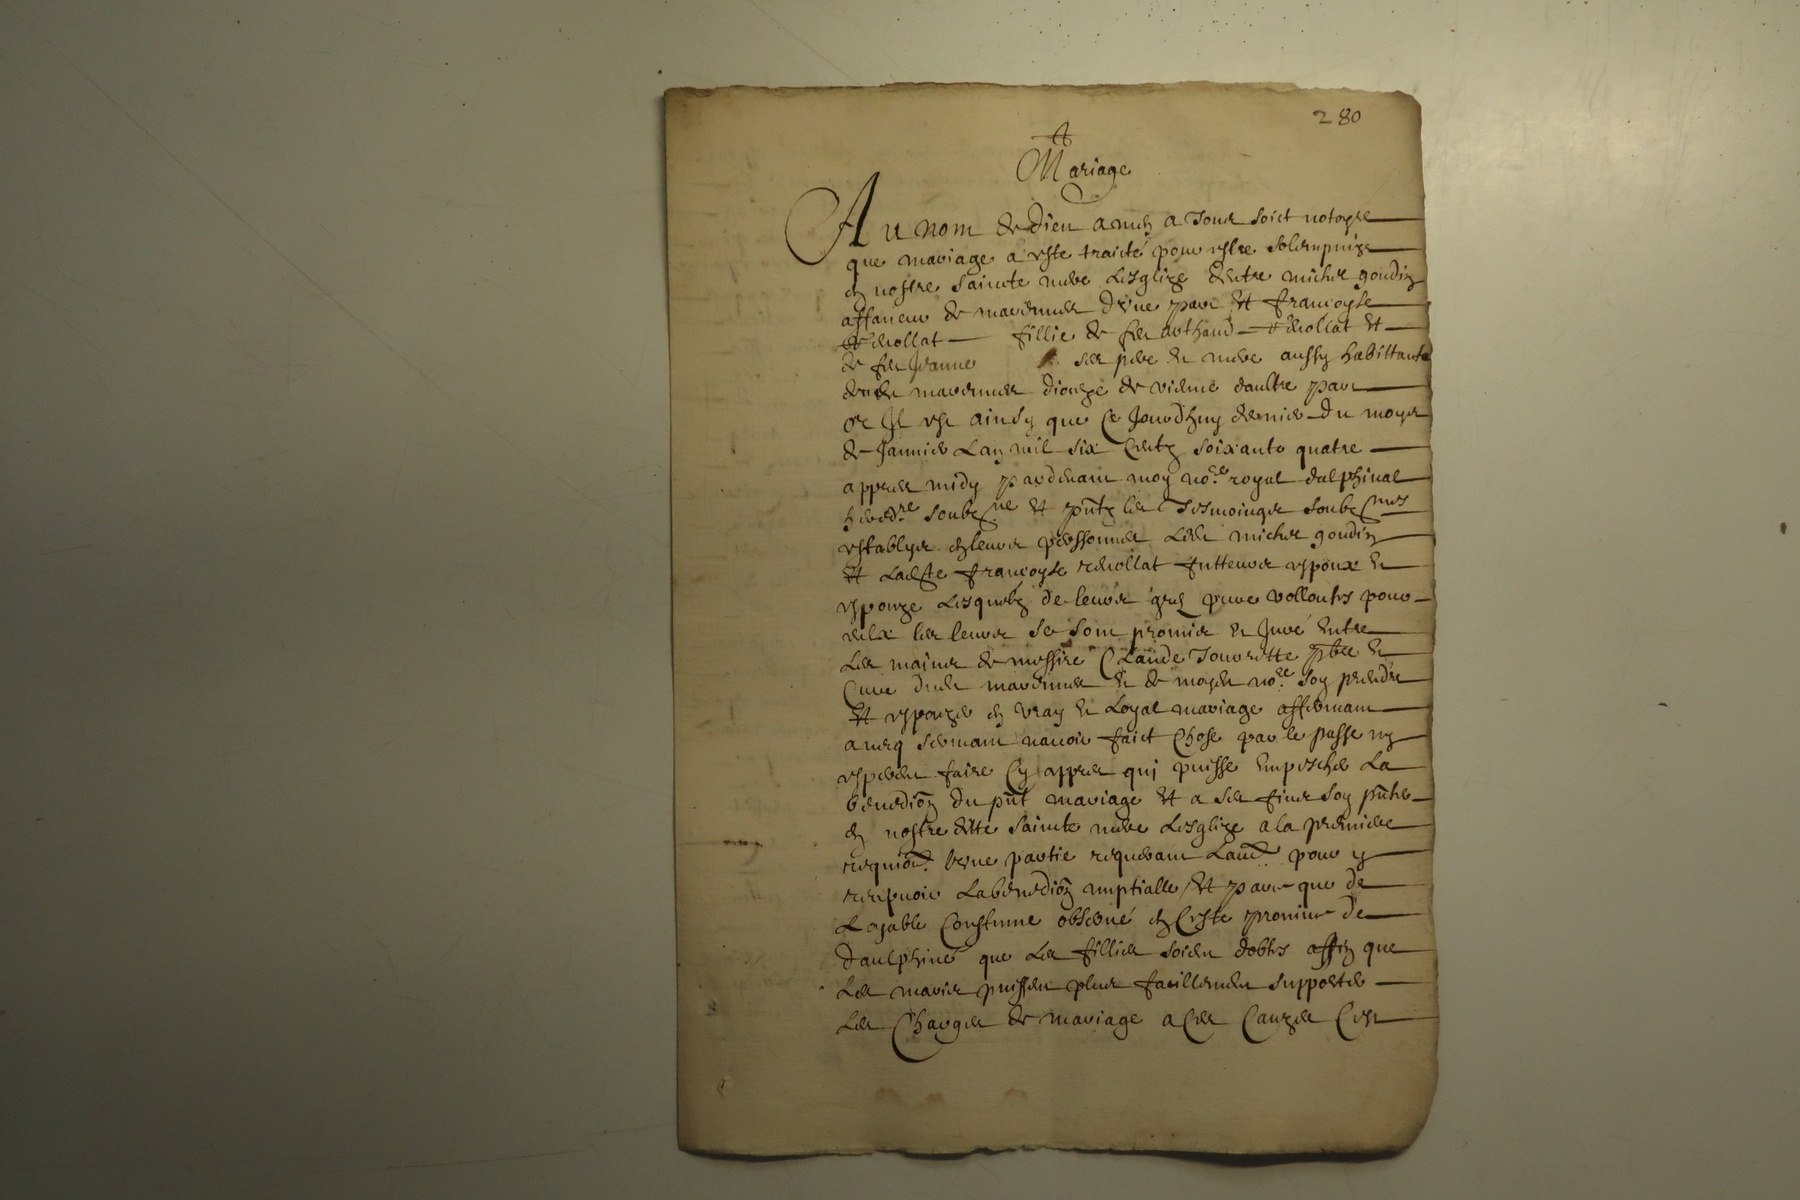 280
Mariage
Au nom de Dieu amen a Tous soict notoyre
que mariage a este traicté pour estre solempnize
en nostre saincte mere Lesglize Entre michel goudin
affaneur de d'une part Et francoyse
fillie de feu arthaud Et
de feu Jeanne ses pere et mere aussy habittants
dudit dioceze de vienne daultre part
or Il est ainsy que Ce Jourdhuy dernier du moys
de Janvier Lan mil six Centz soixante quatre
appres midy pardevant moy no.re royal dalphinal
hered.re soubz.né Et pntz les Tesmoingtz soubz.nnes
establys en leurs personnes Ledit michel goudin
Et Ladicte francoyse futteurs espoux Et
espouze Lesquelz de leurs grez pure vollontés pour
eulx les leurs se sont promis et Juré Entre
Les mains de messire Claude pbre et
Cure dudit et de moydit no.re soy prendre
Et espouzer en vray et Loyal mariage affermant
avecq serment navoir faict Chose par le passe ny
esperent faire Cy appres qui puisse Empescher La
benedion du pnt mariage Et a ses fins soy pnter
en nostre ditte saincte mere Lesglize a la premiere
requion. lune partie requerant Laud.. pour y
recepvoir La benedion nuptialle Et parce que de
Loyable Coustume observé en Ceste province de
daulphiné que Les fillies soient dottes affin que
Les maris puissent plus facillement supporter
Les Charges de mariage a Ces Cauzes Cest